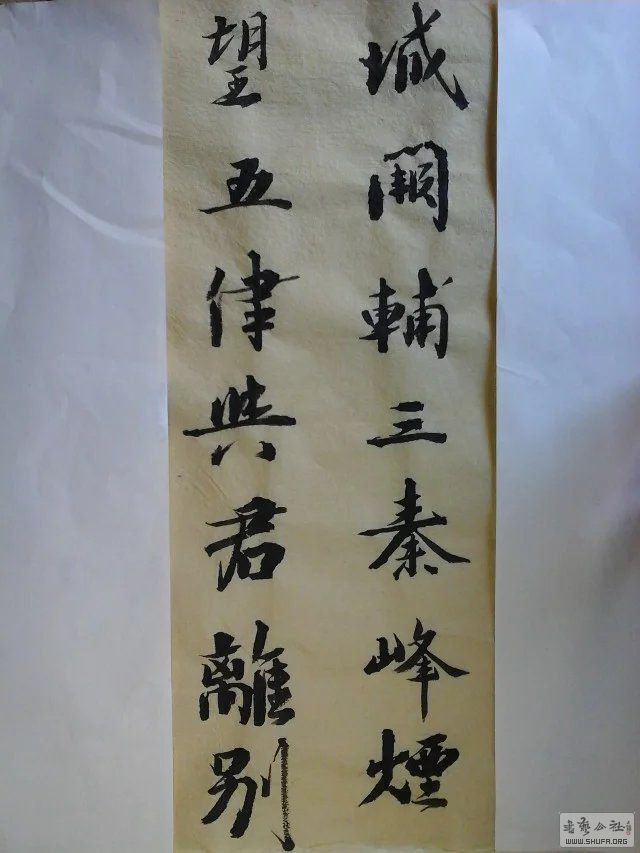 城闕輔三秦峰煙
望五律與君離別
書藝公社
WWW.SHUFA.ORG